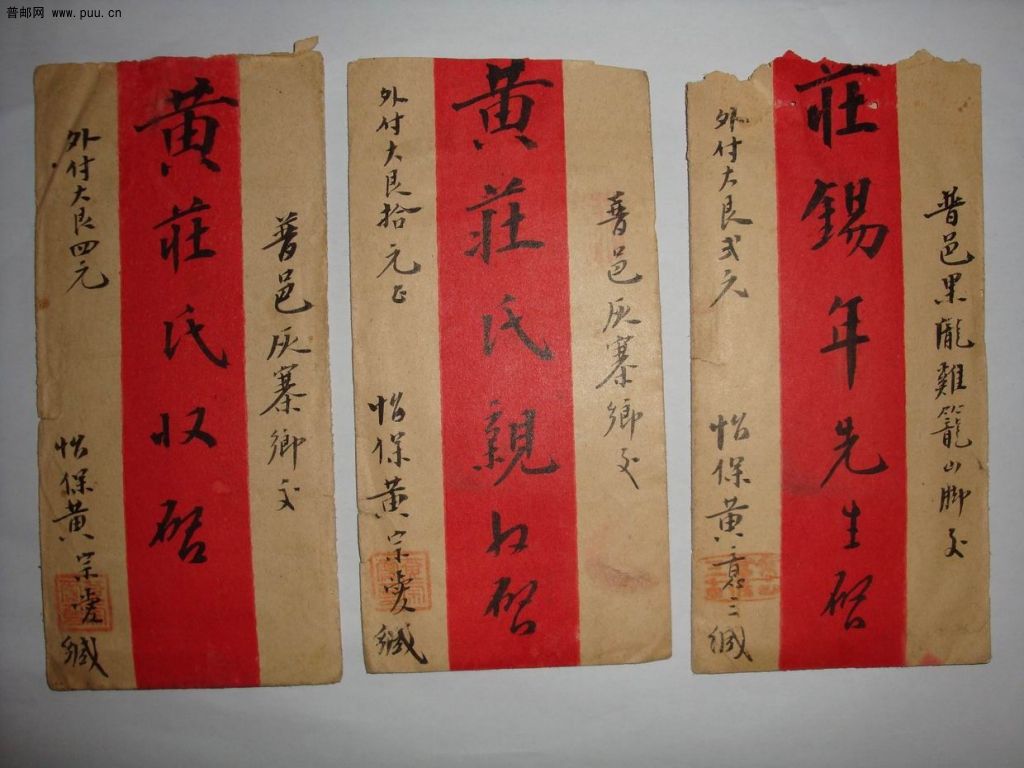 普邮网 www.puu.cn
普邑灰寨鄉交
黄莊氏收啓
外付大艮四元
怡保黄宗愛緘
普邑灰寨鄉交
黄莊氏親收啓
外付大艮拾元正
怡保黄宗愛緘
普邑果隴雞籠山脚交
莊錫年先生啓
外付大艮弍元
怡保黄意二緘